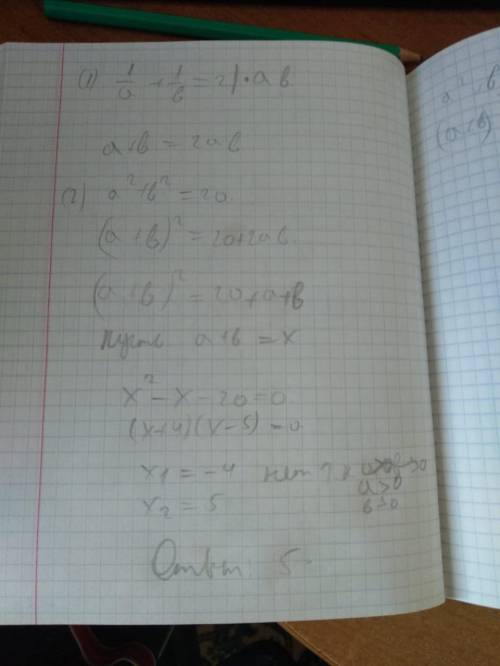 (1) 1/a + 1/b = 2 | · ab
a+b = 2ab
(2) a² + b² = 20
(a+b)² = 20+2ab
(a+b)² = 20+a+b
Пусть a+b = x
x² - x - 20 = 0
(x+4)(x-5) = 0
x1 = -4 нет т.к
a>0
b>0
x2 = 5
Ответ 5
a² b
(a+b)